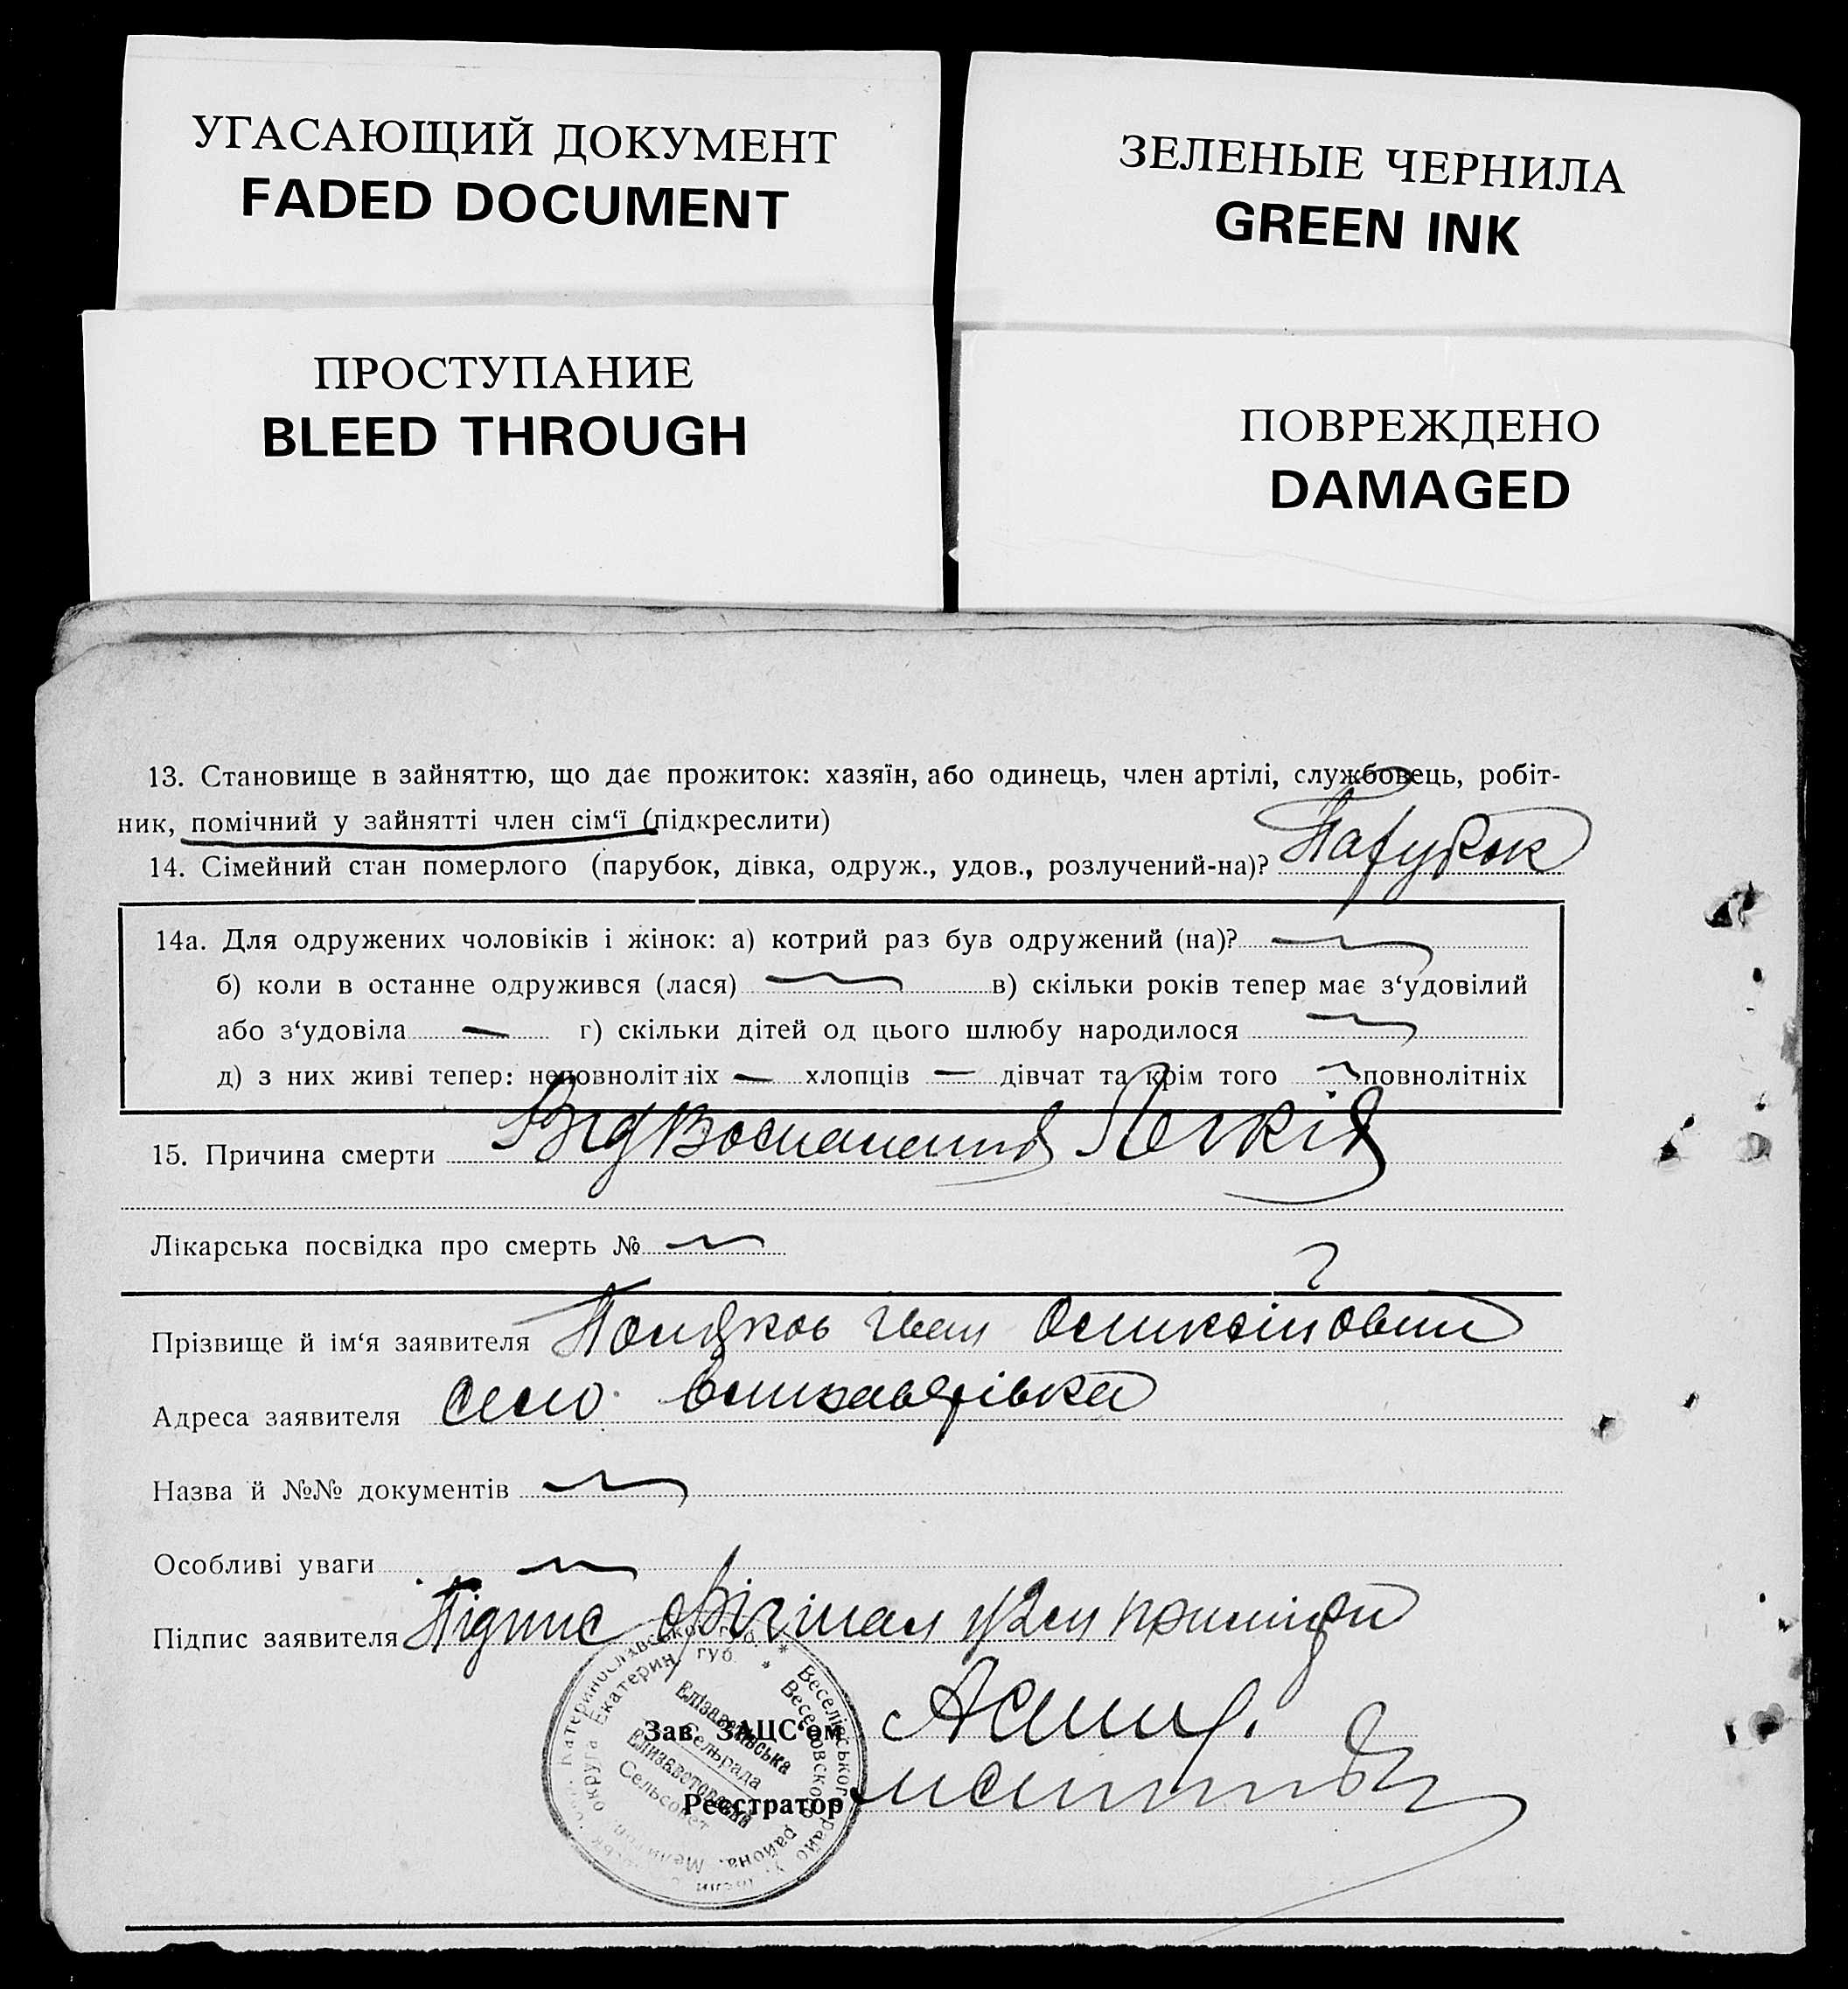 УГАСАЮЩИЙ ДОКУМЕНТ
FADED DOCUMENT
ЗЕЛЕНЫЕ ЧЕРНИЛА
GREEN INK
ПРОСТУПАНИЕ
BLEED THROUGH
ПОВРЕЖДЕНО
DAMAGED
13. Становище в зайняттю, що дає прожиток: хазяїн, або одинець, член артілі, службовець, робіт-
ник, помічний у зайнятті член сім‘ї (підкреслити)
14. Сімейний стан померлого (парубок, дівка, одруж., удов., розлучений-на)? Парубок
14а. Для одружених чоловіків і жінок: а) котрий раз був одружений (на)? —
б) коли в останне одружився (лася) — в) скільки років тепер має з‘удовілий
або з‘удовіла — г) скільки дітей од цього шлюбу народилося —
д) з них живі тепер: неповнолітніх — хлопців — дівчат та крім того — повнолітніх
15. Причина смерти Від Воспаления Легкій
Лікарська посвідка про смерть № —
Прізвище й ім‘я заявителя Іван
Адреса заявителя Село Елизаветівка
Назва й №№ документів —
Особливі уваги —
Підпис заявителя Підпис
Зав. ЗАЦС‘ом
Реєстратор
Катеринославської губ. * Веселівського райо
Екатерин. губ. * Веселовского района, Мелитоп. округа
Єлізаветівська
Сельрада
Елизаветовский
Сельсовет